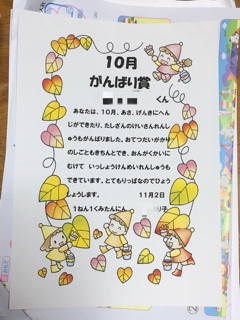 10月
がんばり賞
くん
あなたは、10月、あさ、げんきにへん
じができたり、たしざんのけいさんれん
しゅうもがんばりました。おてつだいがかり
のしごともきちんとでき、おんがくかいに
むけて いっしょうけんめいれんしゅうも
できています。とてもりっぱなのでひょう
しょうします。 11月2日
1ねん1くみたんにん 子